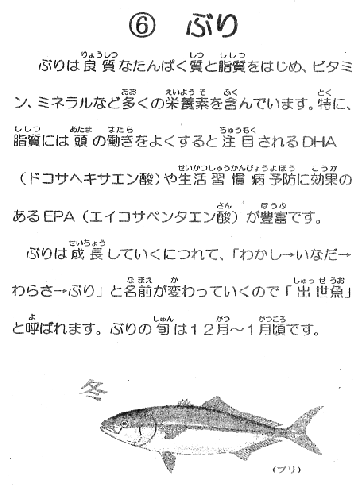 ⑥ ぶり
ぶりは良質なたんぱく質と脂質をはじめ、ビタミ
ン、ミネラルなど多くの栄養素を含んでいます。特に、
脂質には頭の働きをよくすると注目されるDHA
（ドコサヘキサエン酸）や生活習慣病予防に効果の
あるEPA（エイコサペンタエン酸）が豊富です。
ぶりは成長していくにつれて、「わかし→いなだ→
わらさ→ぶり」と名前が変わっていくので「出世魚」
と呼ばれます。ぶりの旬は12月～1月頃です。
冬
（ブリ）